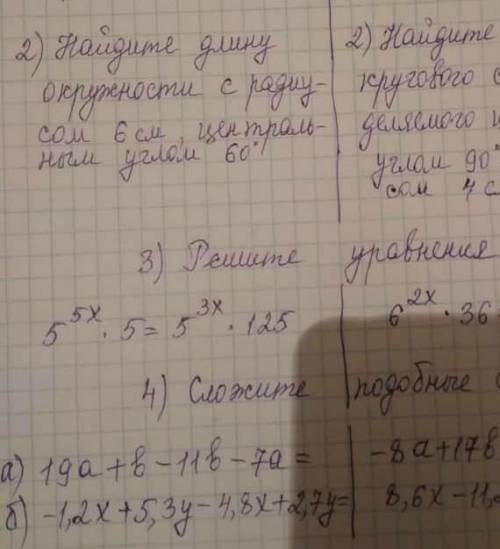 2) Найдите длину
окружности с радиу-
сом 6 см, централь-
ным углом 60°
2) Найдите
кругового
деляемого
углом 90°
сом 4 с
3) Решите уравнения
5^{5x} · 5 = 5^{3x} · 125
6^{2x} · 36
4) Сложите подобные
а) 19a + b - 11b - 7a =
б) -1,2x + 5,3y - 4,8x + 2,7y =
-8a + 17b
8,6x - 11,2